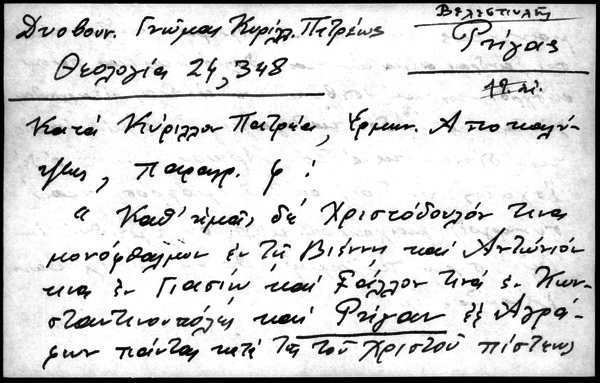 Δυοβουν. Γνώμαι Κυρίλλ. Πατρέως
Θεολογία 24, 348
Βελεστινλής
Ρήγας
19. αἰ.
Κατά Κύριλλον Πατρέα, Ἑρμην. Ἀποκαλύ-
ψεως, παραγρ. φ :
" Καθ' ἡμᾶς δέ Χριστόδουλόν τινα
μονόφθαλμον ἐν τῇ Βιέννῃ καί Ἀντώνιόν
τινα ἐν Γιασίῳ καί τινά ἐν Κων-
σταντινουπόλει καί Ρήγαν ἐξ Ἀγρά-
φων πάντας κατά τῆς τοῦ Χριστοῦ πίστεως